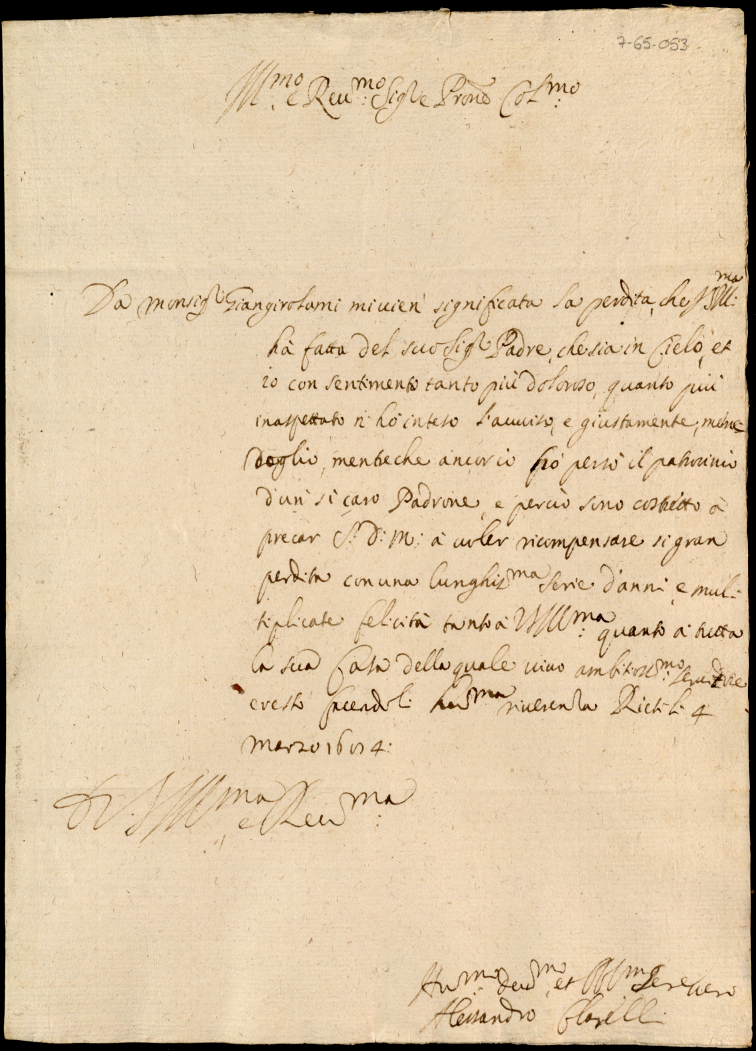 7-65-053
Ill.mo e Reu.mo Sig.r e Prone Col.mo
Da Monsig.r Giangirolami mi uien significata la perdita, che V.S. Ill.ma
hà fatta del suo Sig.r Padre, che sia in Cielo, et
io con sentimento tanto più doloroso, quanto più
inaspettato n'hò inteso l'auuiso, e giustamente, me ne
doglio, mentre che ancor io hò perso il patrocinio
d'un sì caro Padrone, e perciò sono costretto à
precar S. D. M. à uoler ricompensare si gran
perdita con una lunghis.ma serie d'anni, e mul-
tiplicate felicità tanto à V.S. Ill.ma quanto à tutta
la sua Casa della quale uiuo ambitiosis.mo seruitore
e resto facendoli hum.ma riuerenza Rieti li 4
marzo 16
di V.S. Ill.ma e Reu.ma
Hu.mo Deu.mo et
Alessandro